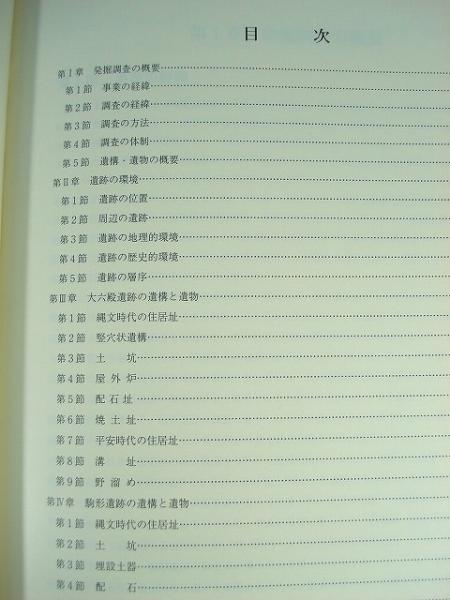 目　次
第Ⅰ章　発掘調査の概要
第1節　事業の経緯
第2節　調査の経緯
第3節　調査の方法
第4節　調査の体制
第5節　遺構・遺物の概要
第Ⅱ章　遺跡の環境
第1節　遺跡の位置
第2節　周辺の遺跡
第3節　遺跡の地理的環境
第4節　遺跡の歴史的環境
第5節　遺跡の層序
第Ⅲ章　大六殿遺跡の遺構と遺物
第1節　縄文時代の住居址
第2節　竪穴状遺構
第3節　土　坑
第4節　屋外炉
第5節　配石址
第6節　焼土址
第7節　平安時代の住居址
第8節　溝　址
第9節　野溜め
第Ⅳ章　駒形遺跡の遺構と遺物
第1節　縄文時代の住居址
第2節　土　坑
第3節　埋設土器
第4節　配　石